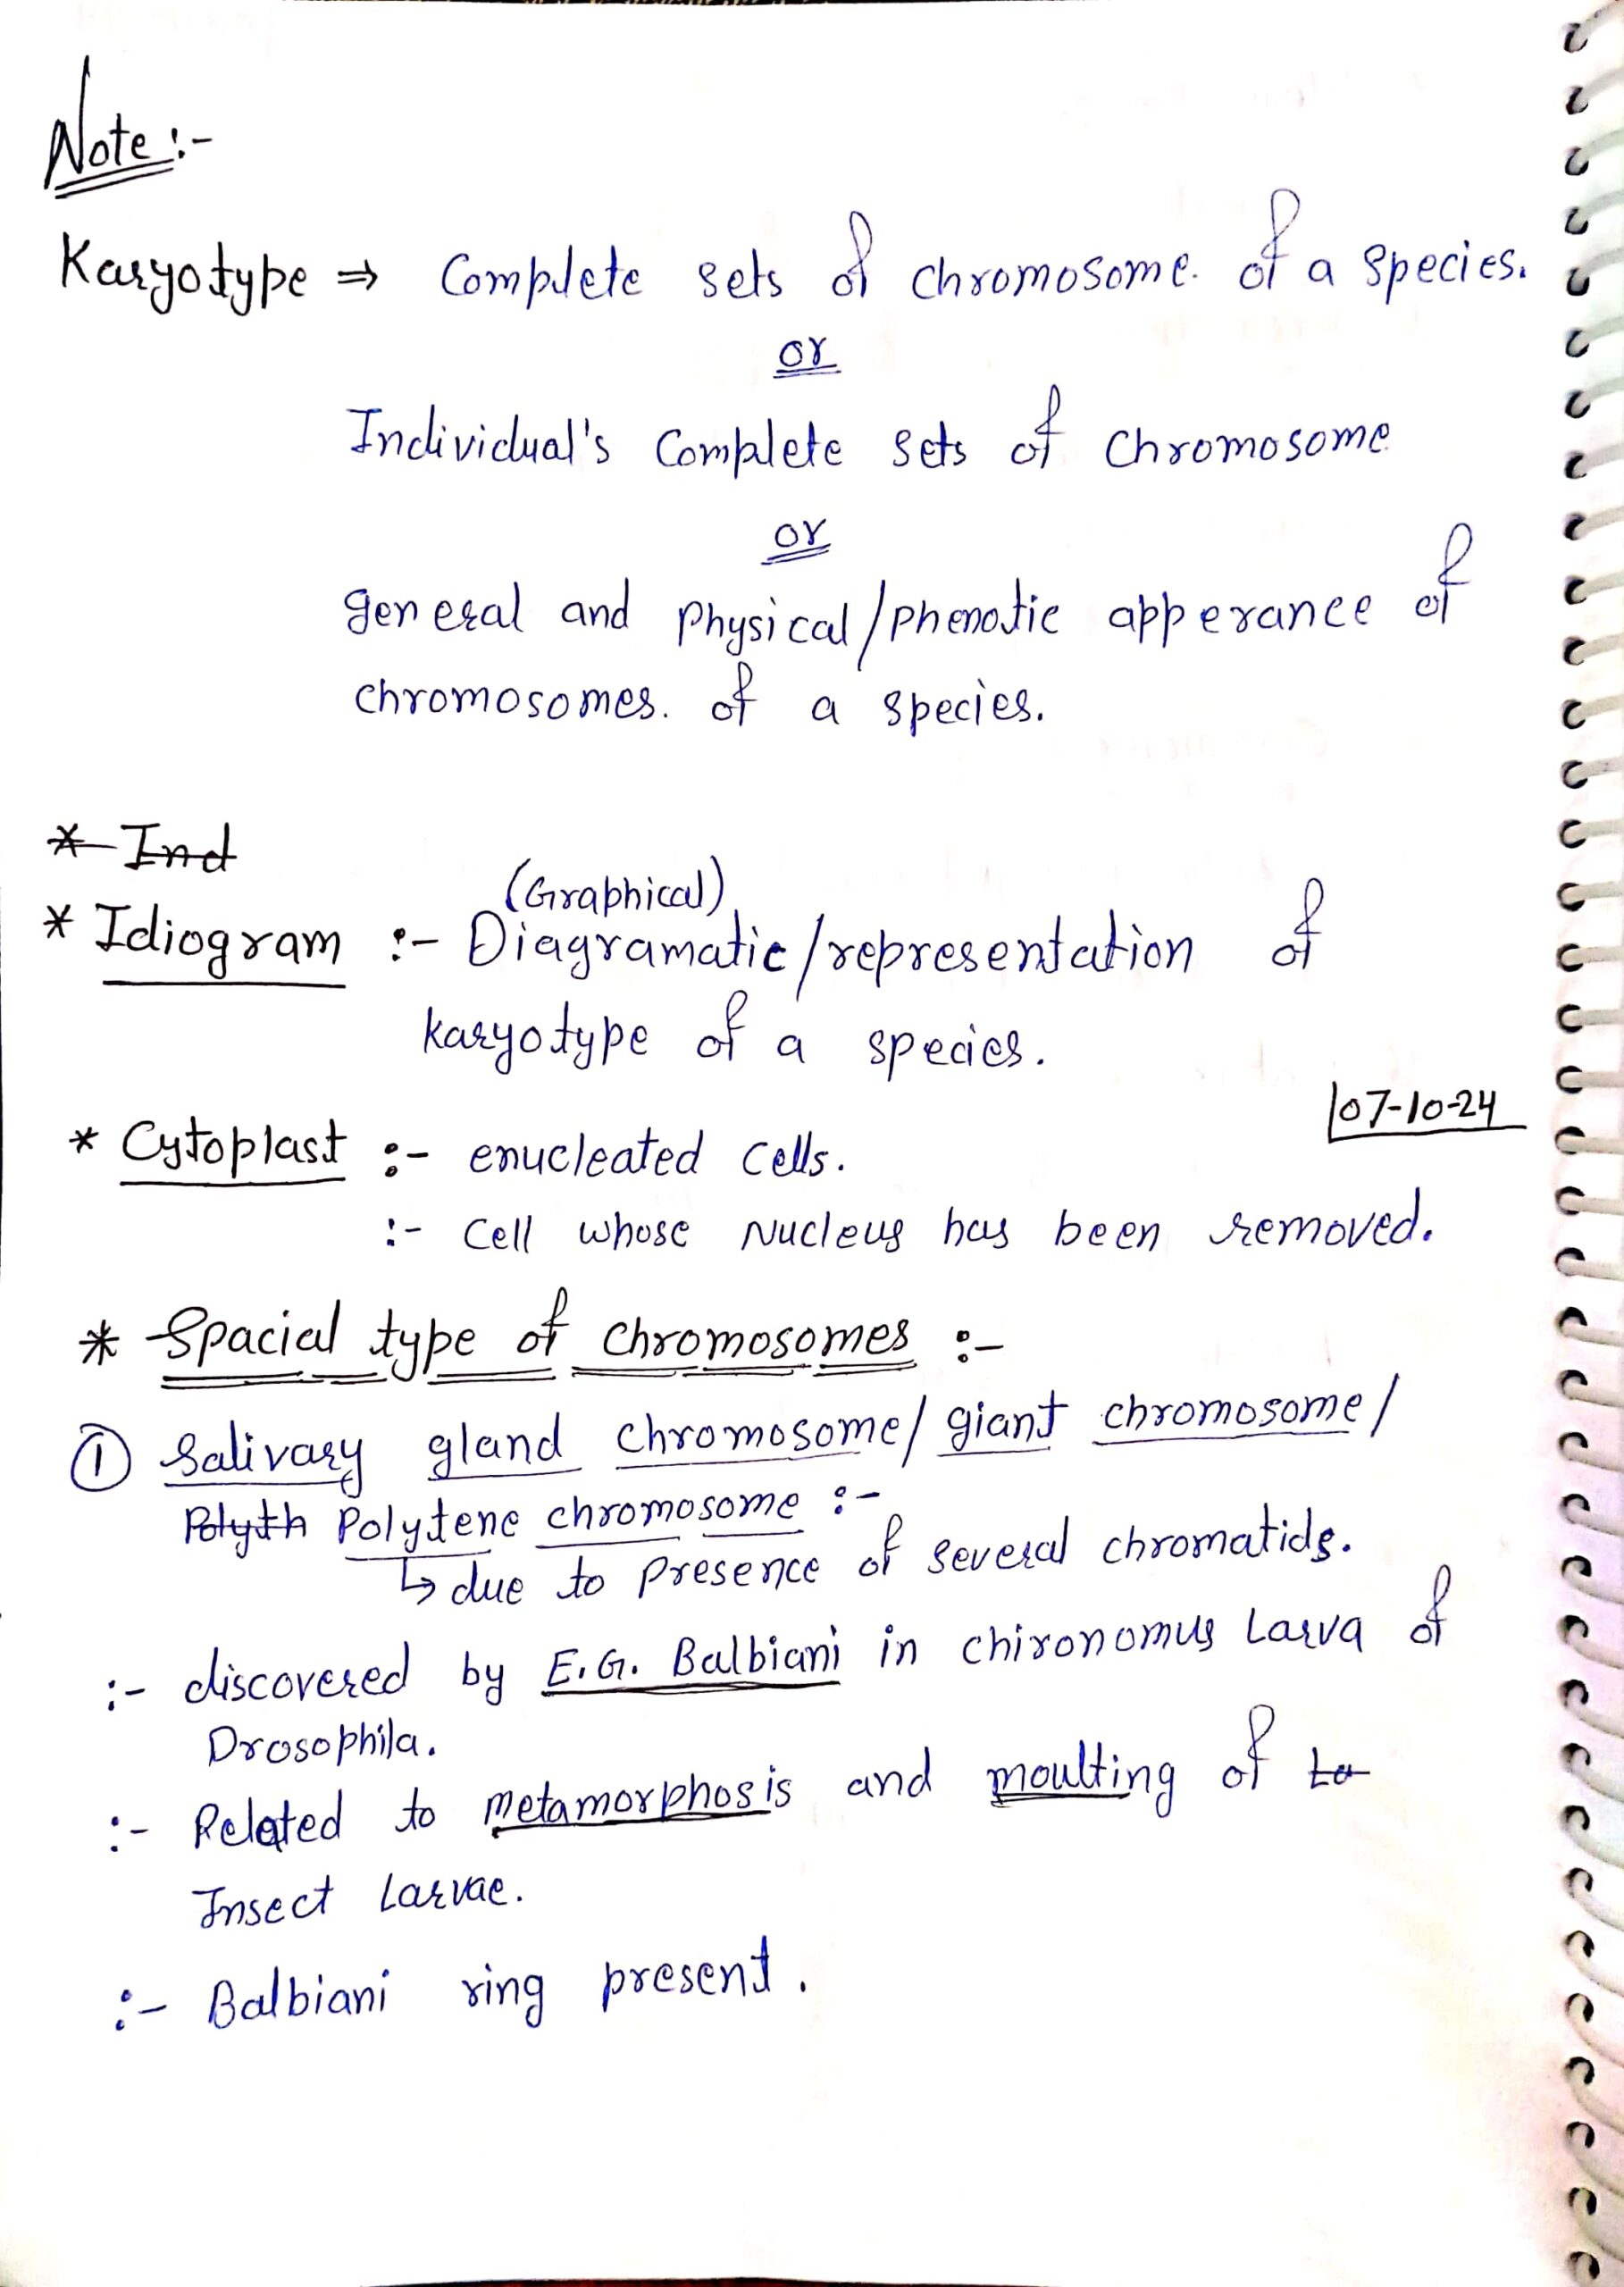 Note :-
Karyotype ⇒ Complete sets of chromosome. of a species.
or
Individual's Complete sets of chromosome
or
general and Physical/Phenotic apperance of
chromosomes. of a species.
* Ind
(Graphical)
* Idiogram :- Diagramatic/representation of
karyotype of a species.
07-10-24
* Cytoplast :- enucleated cells.
:- Cell whose Nucleus has been removed.
* Spacial type of chromosomes :-
① Salivary gland chromosome/ giant chromosome/
Polyth Polytene chromosome :-
↳ due to Presence of several chromatids.
:- discovered by E.G. Balbiani in chironomus Larva of
Drosophila.
:- Related to metamorphosis and moulting of La
Insect Larvae.
:- Balbiani ring present.